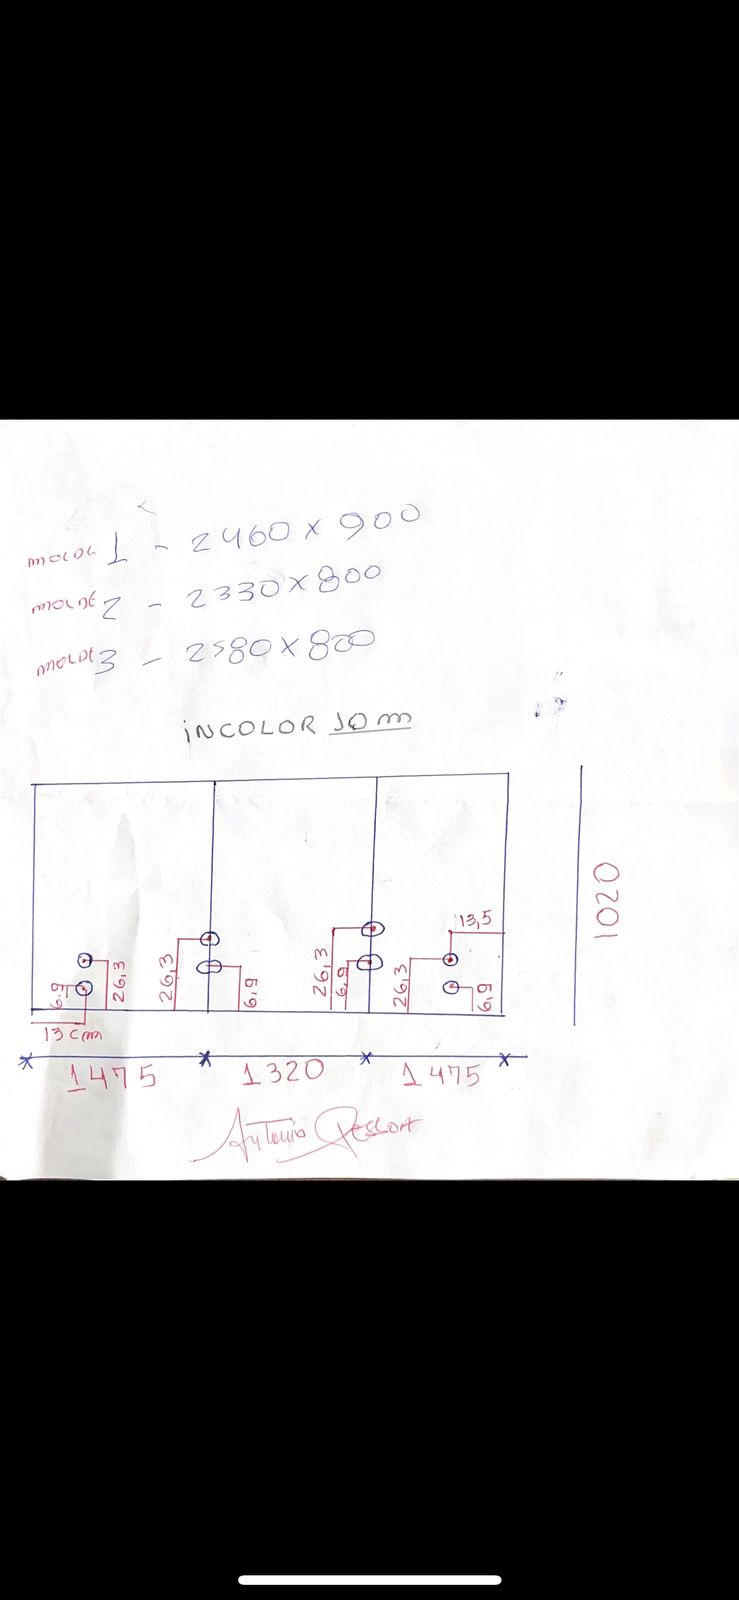 MOLDE 1 - 2460 x 900
MOLDE 2 - 2330 x 800
MOLDE 3 - 2580 x 800
iNCOLOR 10 m
1020
13,5
26,3
26,3
26,3
26,3
6.9
6,9
6,9
6,9
13 cm
1475
1320
1475
Antonio Pessoa